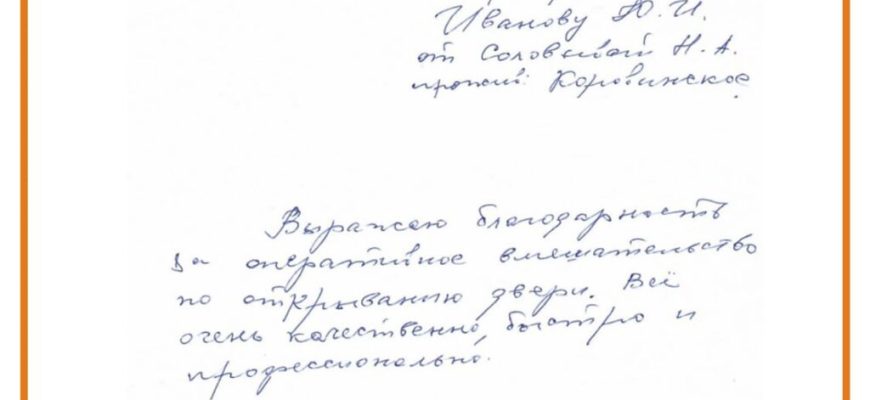 Иванову Ю. И.
от Соловьёвой Н. А.
прожив: Коровинское
Выражаю благодарность
за оперативное вмешательство
по открыванию двери. Всё
очень качественно, быстро и
профессионально.